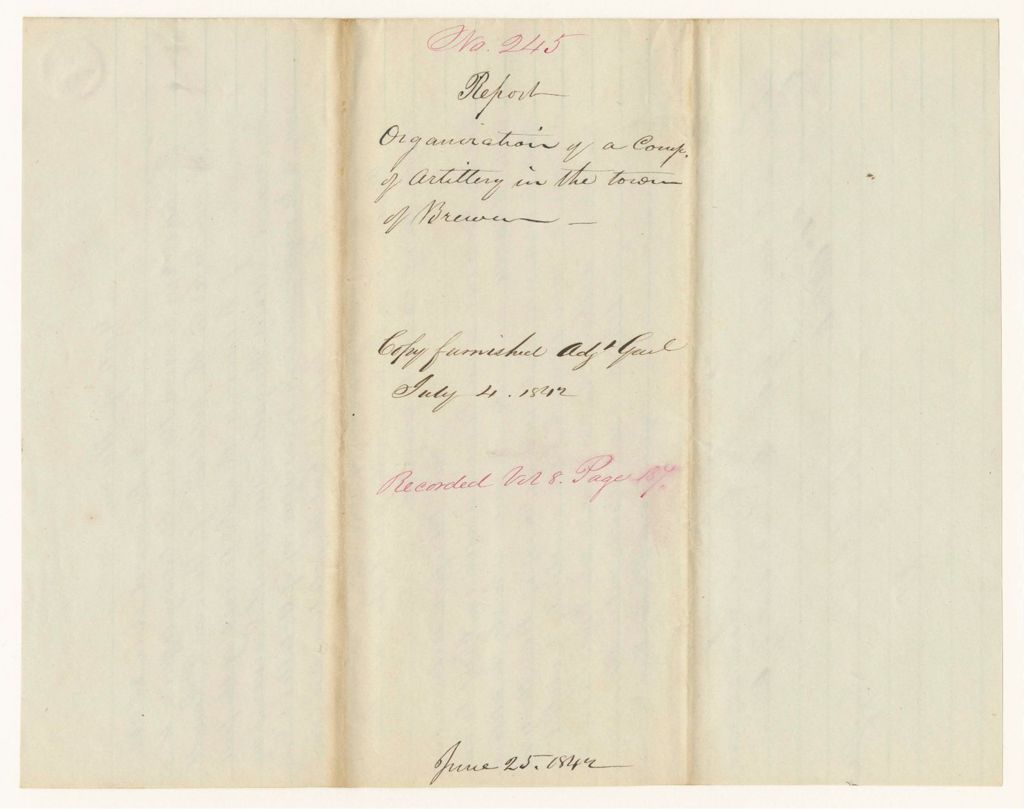 No. 245
Report
Organization of a Comp.
of Artillery in the town
of Brewer —
Copy furnished Adjt Genl
July 4. 1842
Recorded Vol 8. Page 187.
June 25. 1842